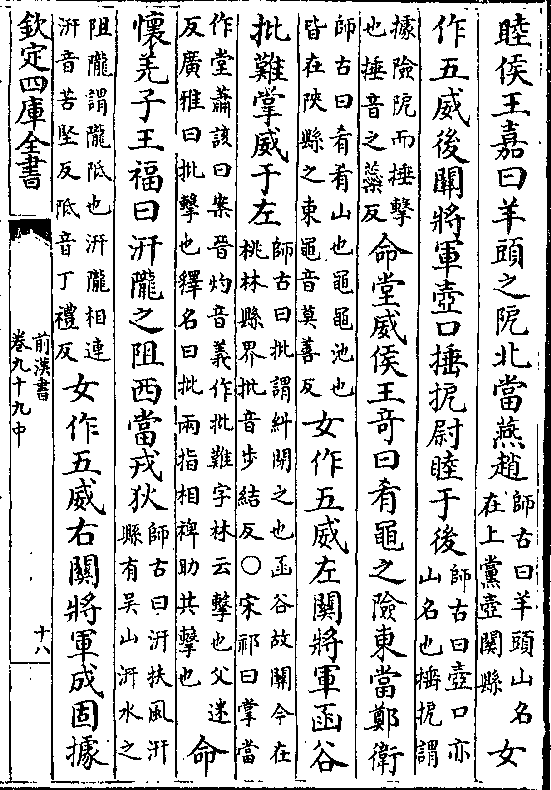 睦侯王嘉曰羊頭之阸北當燕趙師古曰羊頭山名在上黨壺關縣女
作五威後關將軍壺口捶扼尉睦于後師古曰壺口亦山名也捶扼謂
據險阸而捶擊也捶音之蘂反命堂威侯王奇曰肴黽之險東當鄭衛
師古曰肴肴山也黽黽池也皆在陝縣之東黽音莫善反女作五威左關將軍函谷
批難掌威于左師古曰批謂糾閉之也函谷故關今在桃林縣界批音步結反○宋祁曰掌當
作堂蕭該曰案晉灼音義作批難字林云擊也父迷反廣雅曰批擊也釋名曰批兩指相裨助共擊也命
懷羌子王福曰汧隴之阻西當戎狄師古曰汧扶風汧縣有吳山汧水之
阻隴謂隴阺也汧隴相連汧音苦堅反阺音丁禮反女作五威右關將軍成固據
欽定四庫全書
前漢書
卷九十九中
十八